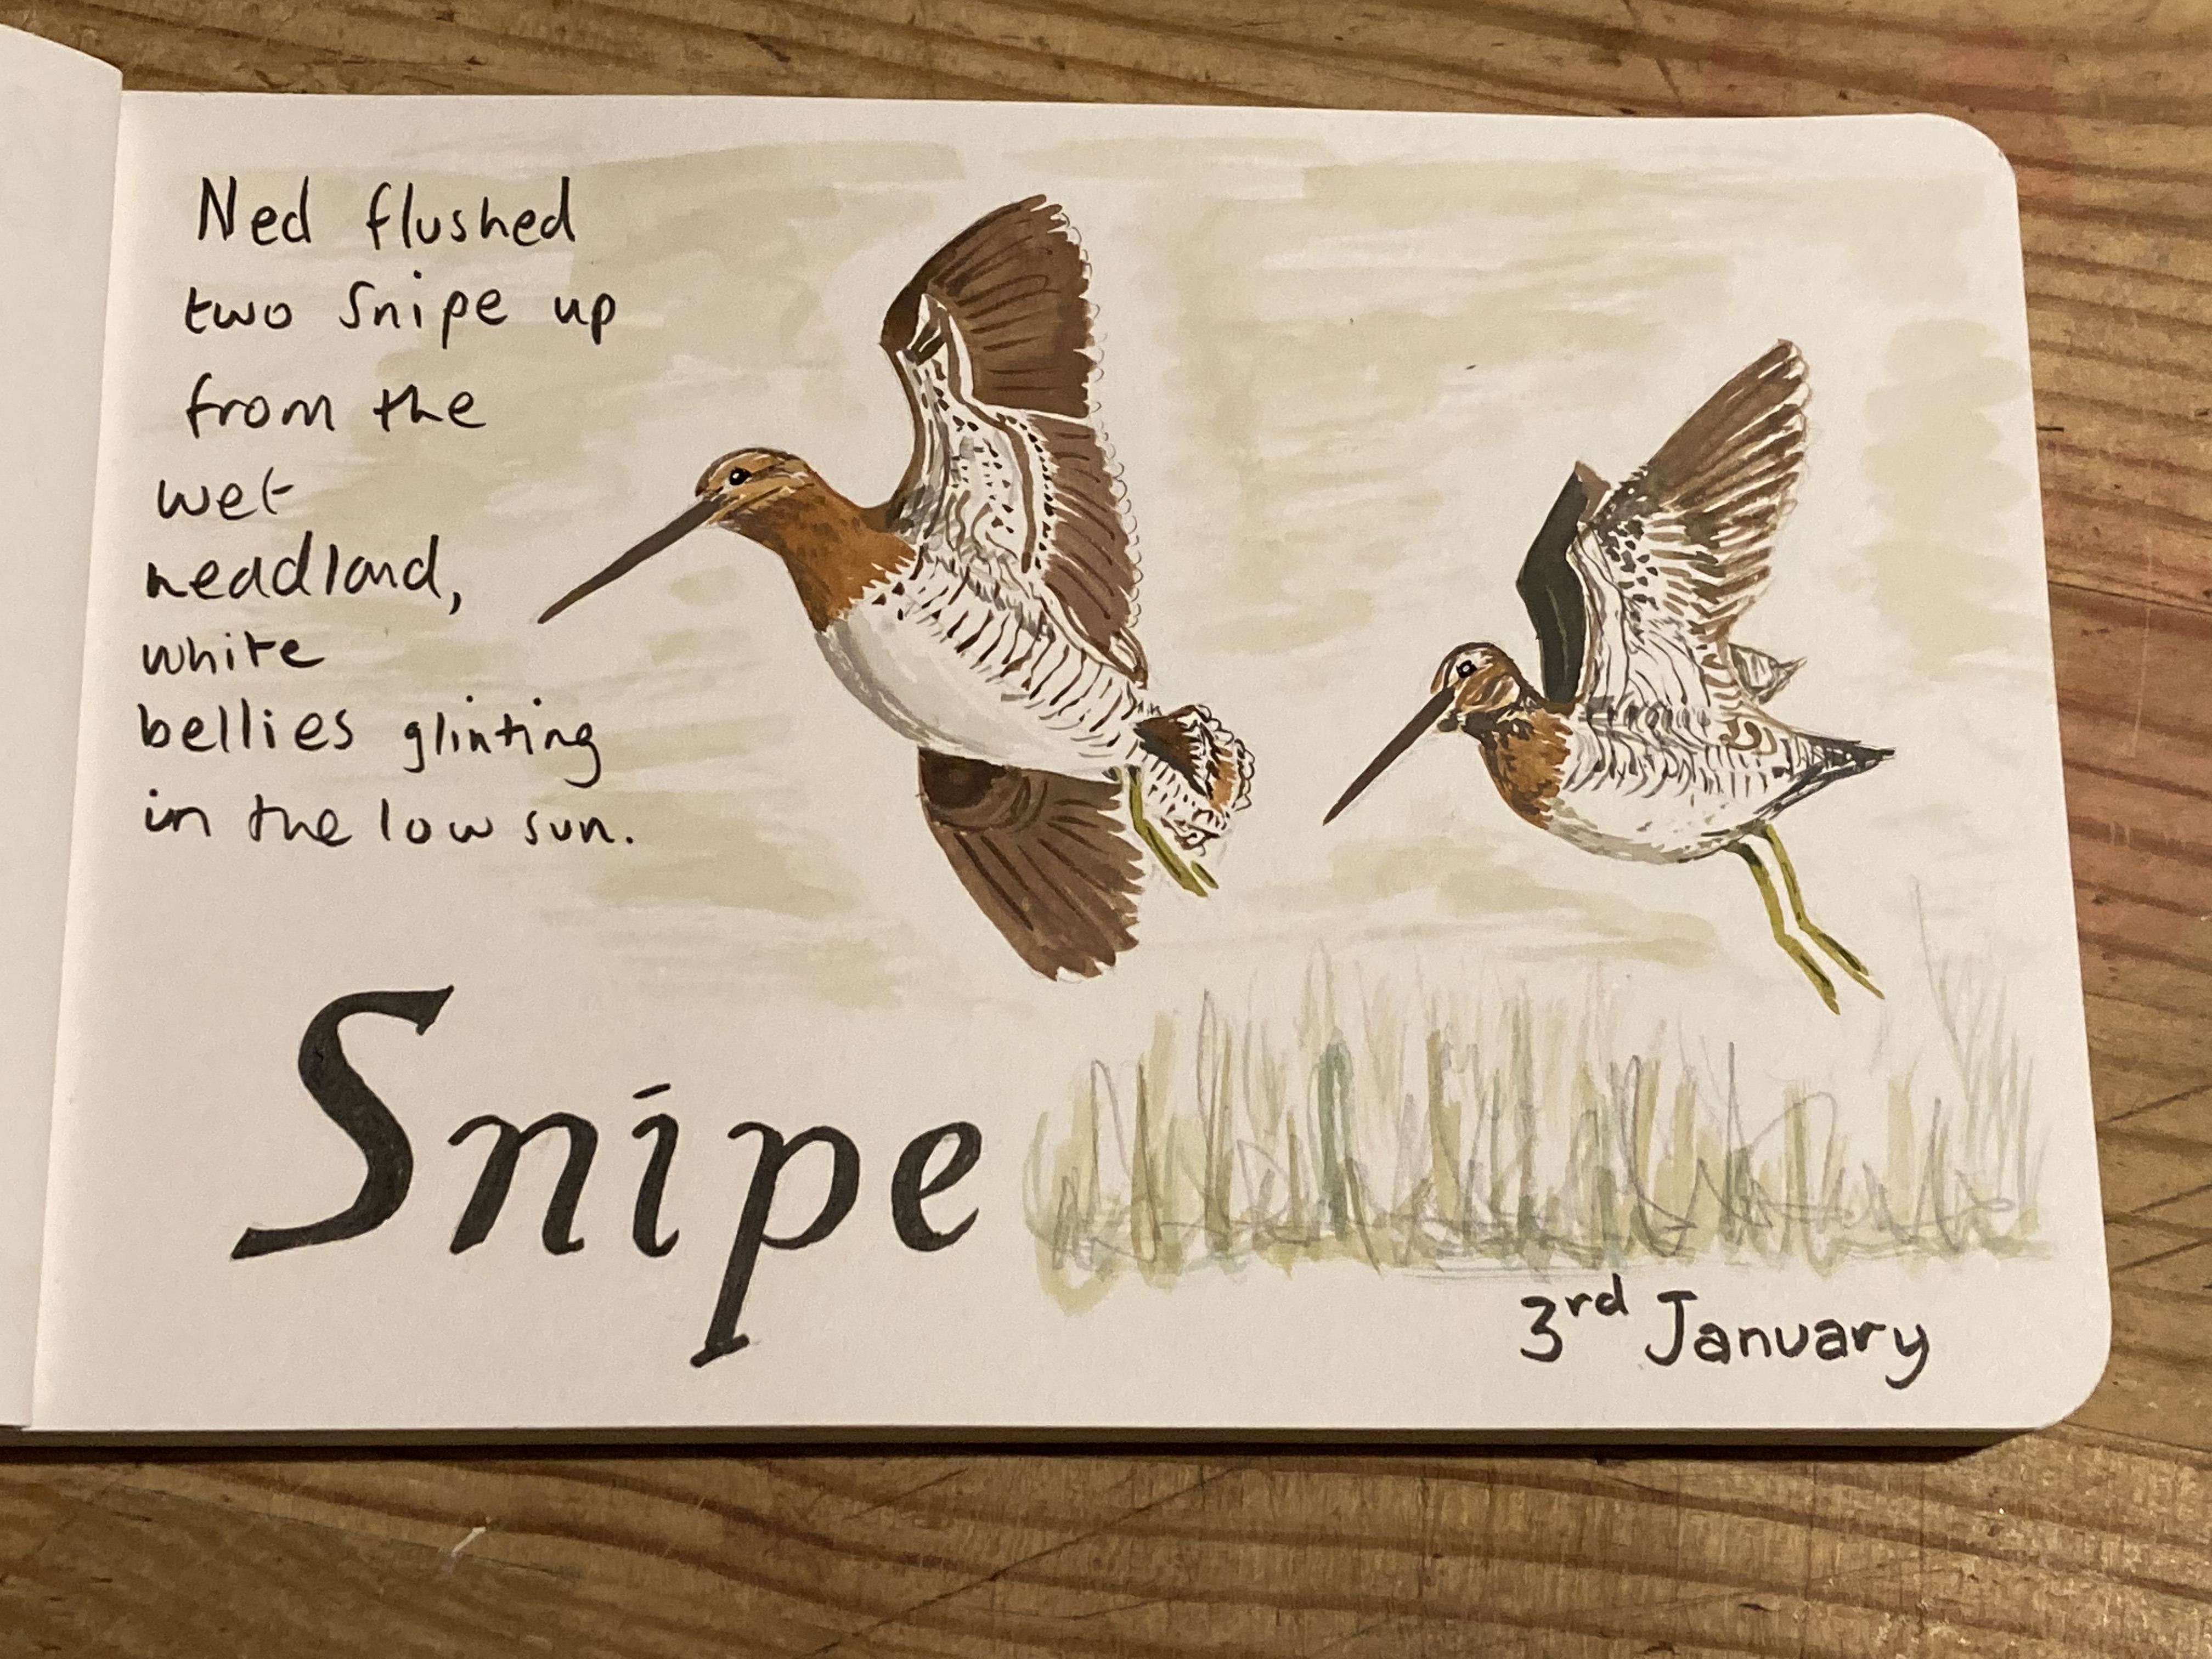 Ned flushed
two Snipe up
from the
wet
headland,
white
bellies glinting
in the low sun.
Snipe
3rd January